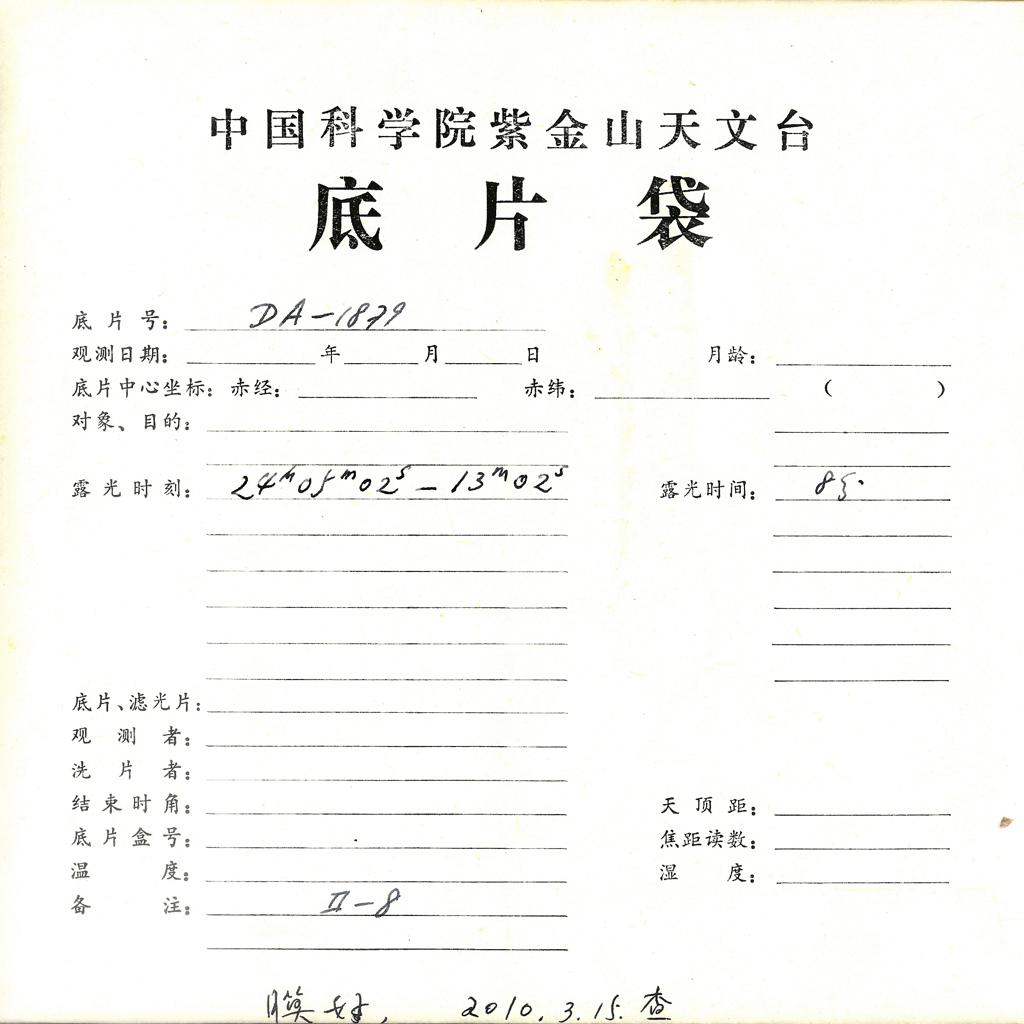 中国科学院紫金山天文台
底片袋
底片号: DA-1879
观测日期: 年 月 日 月龄:
底片中心坐标: 赤经: 赤纬: ( )
对象、目的:
露光时刻: 24h05m02s — 13m02s 露光时间: 8分
底片、滤光片:
观测者:
洗片者:
结束时角: 天顶距:
底片盒号: 焦距读数:
温度: 湿度:
备注: II-8
膜好, 2010.3.15.查